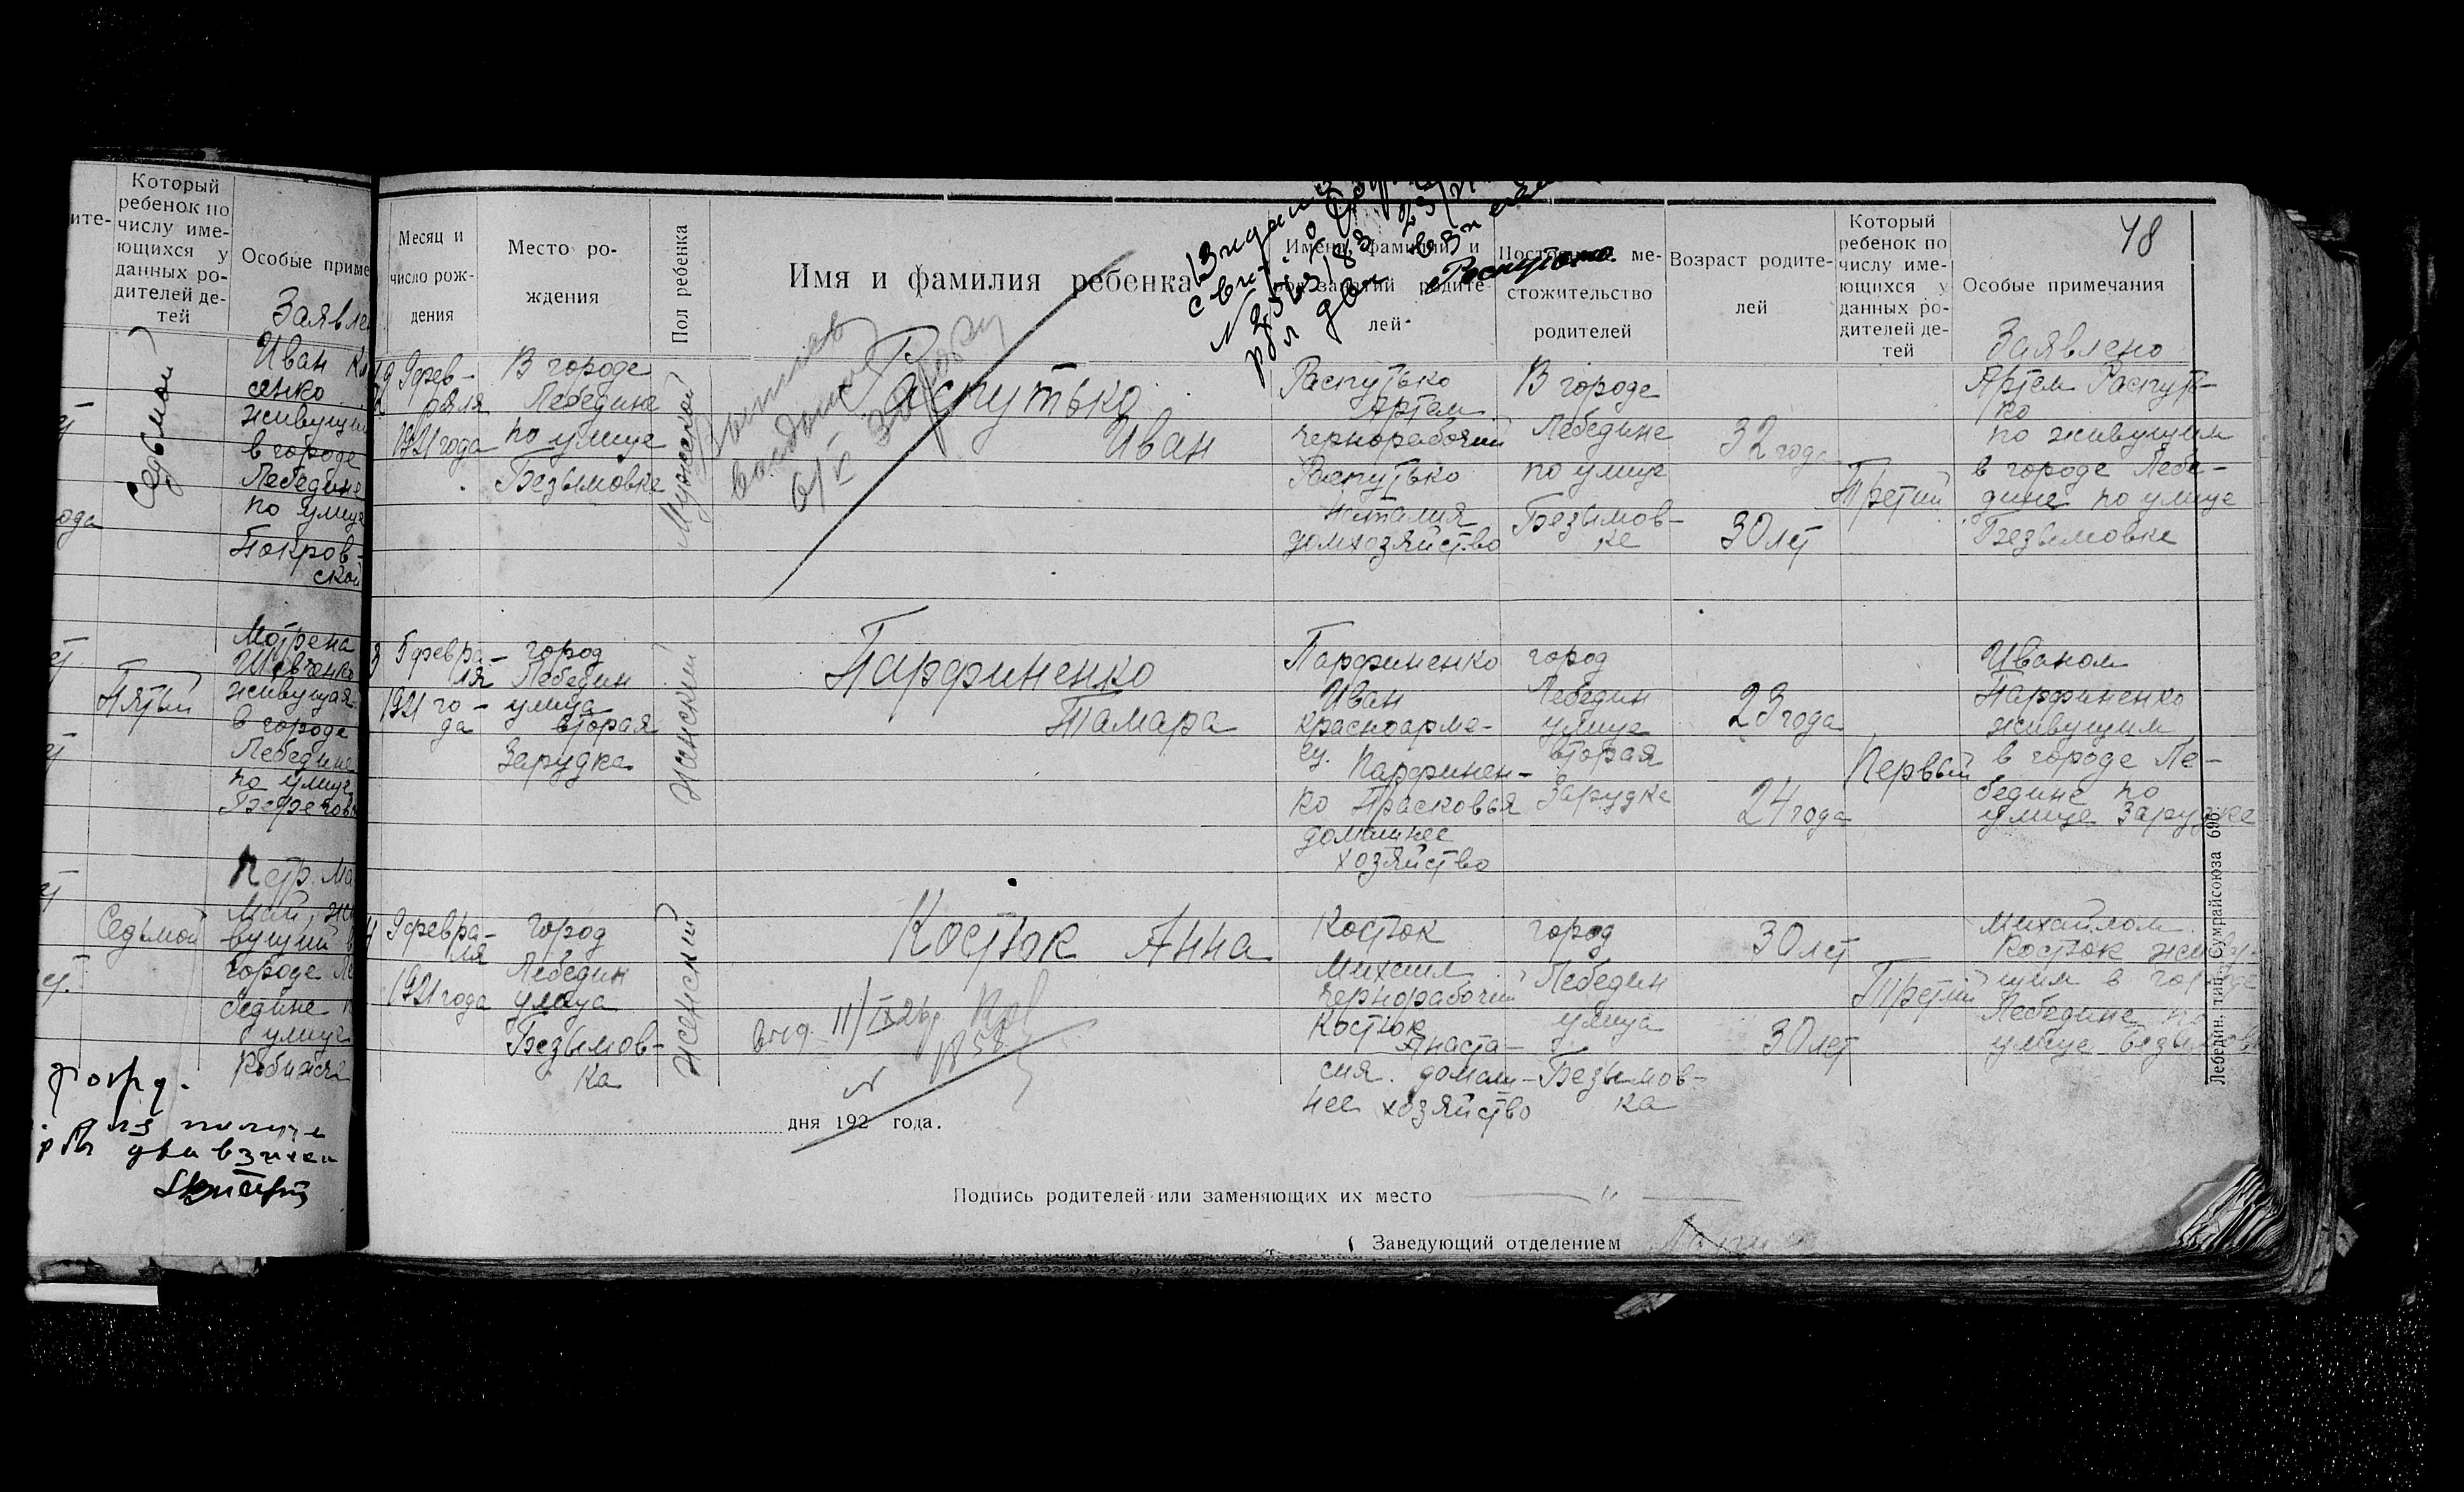 Который
ребенок по
числу име-
ющихся у
данных ро-
дителей де-
тей
Особые приме
Заявле
Седьмой
Иван
сенко
живущи
в городе
Лебедине
по улице
Покров-
ской
Пятый
Мотрена
Шевченко
живущая
в городе
Лебедине
по улице
Седьмой
Петр Ма
вущий в
городе Ле
бедине
улице
два взнеки
48
Месяц и
число рож-
дения
Место ро-
ждения
Пол ребенка
Имя и фамилия ребенка
Имена, фамилии и
род занятий родите-
лей
Постоянное ме-
стожительство
родителей
Возраст родите-
лей
Который
ребенок по
числу име-
ющихся у
данных ро-
дителей де-
тей
Особые примечания
Заявлено
9 фев-
раля
1921 года
В городе
Лебедине
по улице
Безымовке
Мужской
Распутько
Иван
Распутько
Артем
чернорабочий
Распутько
Наталия
домхозяйство
В городе
Лебедине
по улице
Безымов-
ке
32 года
30 лет
Третий
Артем Распуть-
ко
по живущим
в городе Лебе-
дине по улице
Безымовке
3
5 февра-
ля
1921 го-
да
город
Лебедин
улица
вторая
Зарудка
Женский
Парфиненко
Тамара
Парфиненко
Иван
красноарме-
ец. Парфинен-
ко Прасковья
домашнее
хозяйство
город
Лебедин
улице
вторая
Зарудке
23 года
24 года
Первый
Иваном
Парфиненко
живущим
в городе Ле-
бедине по
улице Зарудке
4
9 февра-
ля
1921 года
город
Лебедин
улица
Безымов-
ка
Женский
Костюк Анна
Костюк
Михаил
чернорабочий
Костюк
Анаста-
сия. домаш-
нее хозяйство
город
Лебедин
улица
Безымов-
ка
30 лет
30 лет
Третий
Михайлом
Костюк живу-
щим в городе
Лебедине по
улице Безымов
дня 192 года.
Подпись родителей или заменяющих их место
Заведующий отделением
Лебедин, тип. Сумрайсоюза 696.